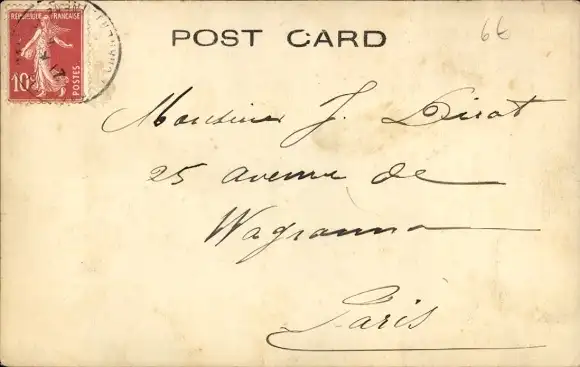 REPUBLIQUE FRANÇAISE
10c
POSTES
POST CARD
6t
Monsieur J. Dirat
25 avenue de
Wagramm
Paris